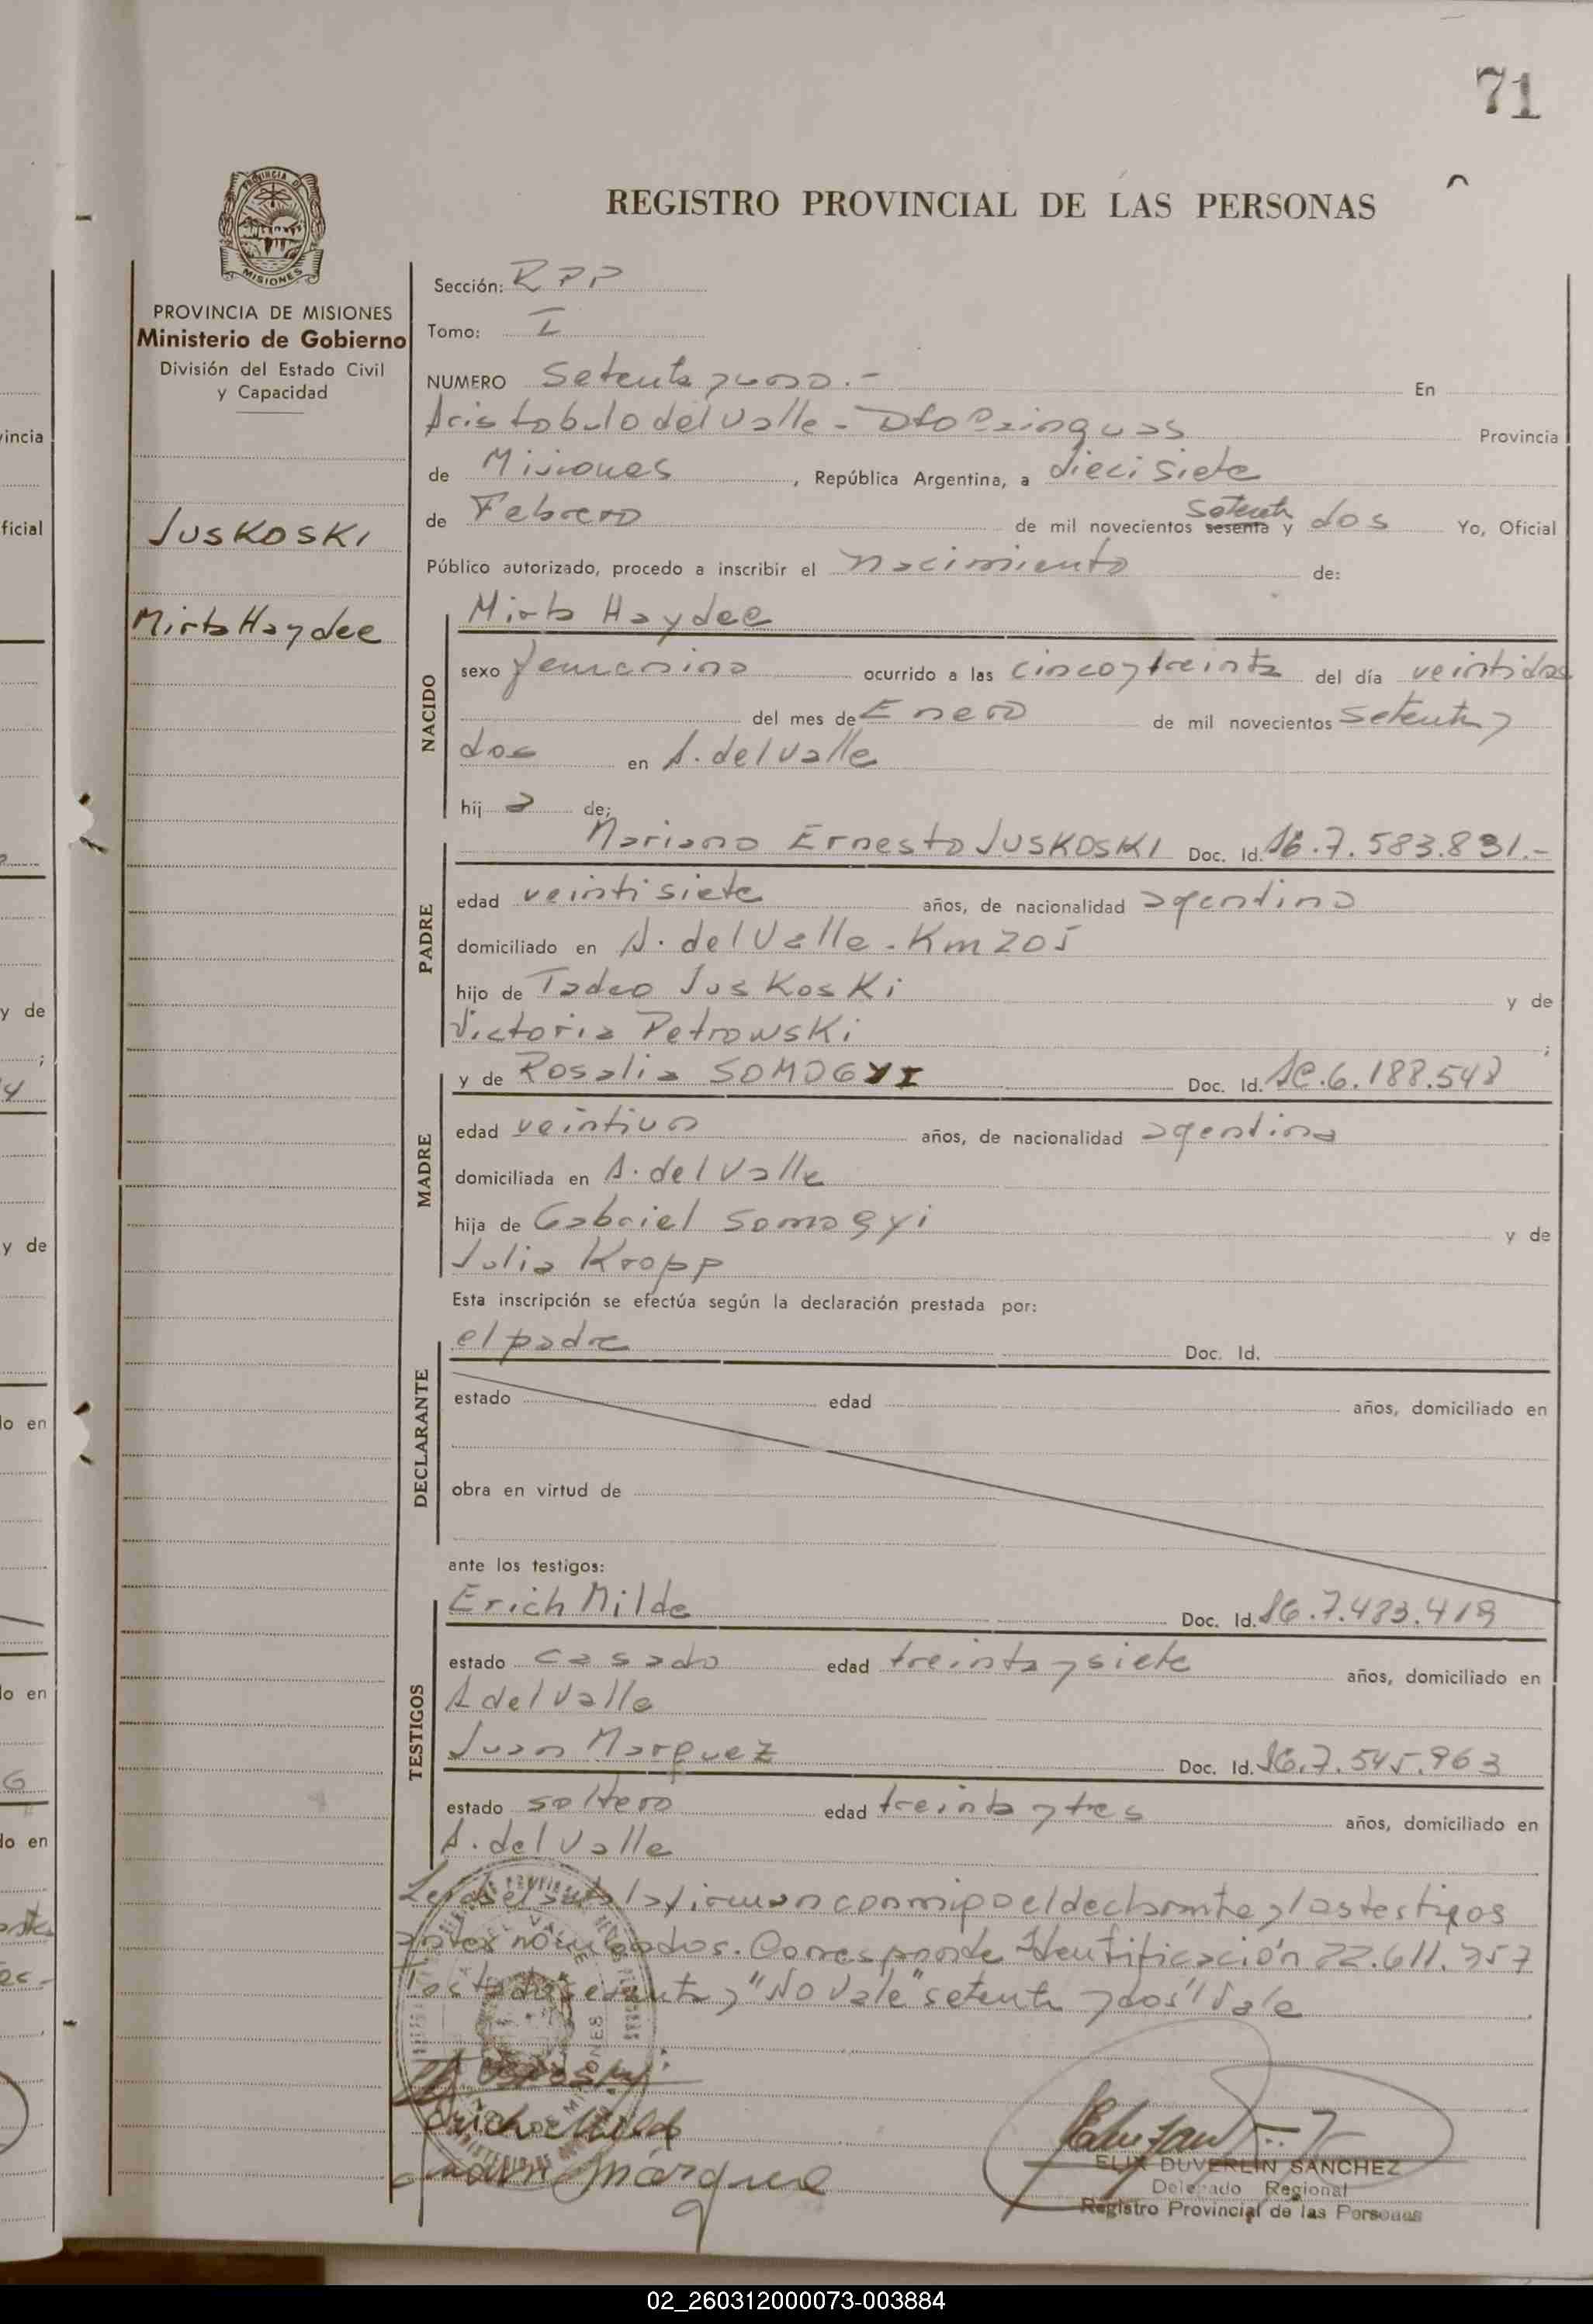 71
REGISTRO PROVINCIAL DE LAS PERSONAS
PROVINCIA DE MISIONES
Ministerio de Gobierno
División del Estado Civil
y Capacidad
JUSKOSKI
Mirta Haydee
Sección: RPP
Tomo: I
NUMERO Setenta y uno.- En
Aristobulo del Valle - Dto Cainguas Provincia
de Misiones, República Argentina, a diecisiete
de Febrero de mil novecientos sesenta setenta y dos Yo, Oficial
Público autorizado, procedo a inscribir el nacimiento de:
NACIDO
Mirta Haydee
sexo femenino ocurrido a las cinco y treinta del día veintidos
del mes de Enero de mil novecientos setenta y
dos en A. del Valle
hij a de:
PADRE
Mariano Ernesto JUSKOSKI Doc. Id. 7.583.831.-
edad veintisiete años, de nacionalidad argentino
domiciliado en A. del Valle - Km 205
hijo de Tadeo Juskoski y de
Victoria Petrowski ;
MADRE
y de Rosalia SOMOGYI Doc. Id. 6.188.548
edad veintiun años, de nacionalidad argentina
domiciliada en A. del Valle
hija de Gabriel Somogyi y de
Julia Kropp
Esta inscripción se efectúa según la declaración prestada por:
DECLARANTE
el padre Doc. Id.
estado edad años, domiciliado en
obra en virtud de
ante los testigos:
TESTIGOS
Erich Milde Doc. Id. 7.483.419
estado casado edad treinta y siete años, domiciliado en
A del Valle
Juan Marquez Doc. Id. 7.545.963
estado soltero edad treinta y tres años, domiciliado en
A. del Valle
Leida el acta la firman conmigo el declarante y los testigos
antes nombrados. Corresponde Identificación 22.611.357
Testado sesenta y "No Vale" setenta y dos" Vale
Erich Milde
Juan Márquez
ELIX DUVERLIN SANCHEZ
Delegado Regional
Registro Provincial de las Personas
02_260312000073-003884